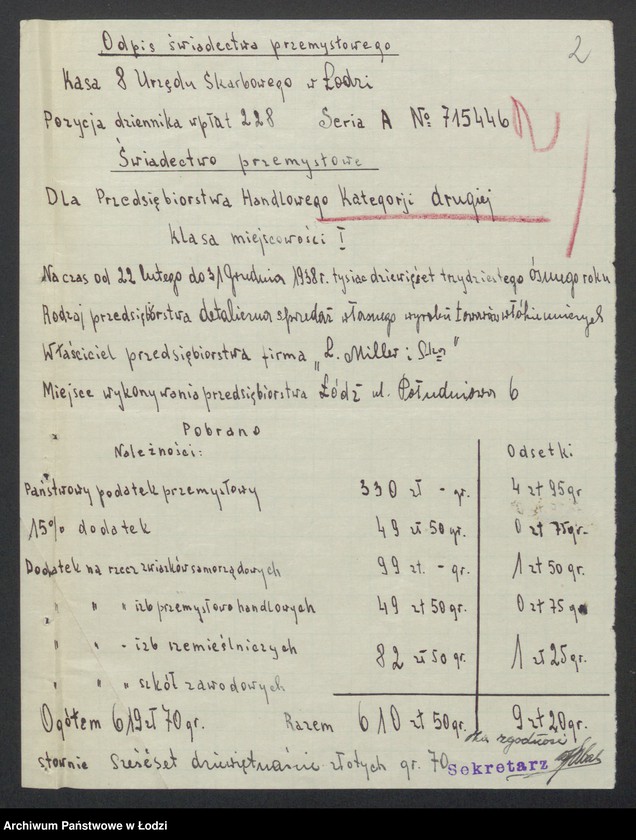 2
Odpis świadectwa przemysłowego
Kasa 8 Urzędu Skarbowego w Łodzi
Pozycja dziennika wpłat 228 Seria A № 715446
Świadectwo przemysłowe
Dla Przedsiębiorstwa Handlowego Kategorji drugiej
klasa miejscowości I
Na czas od 22 lutego do 31 Grudnia 1938r. tysiąc dziewięćset trzydziestego ósmego roku
Rodzaj przedsiębiorstwa detaliczna sprzedaż własnego wyrobu towarów włókienniczych
Właściciel przedsiębiorstwa firma „L. Miller i Ska"
Miejsce wykonywania przedsiębiorstwa Łódź ul. Południowa 6
Pobrano
Należności: Odsetki
Państwowy podatek przemysłowy 330 zł - gr. 4 zł 95 gr
15% dodatek 49 zł 50 gr. 0 zł 75 gr.
Dodatek na rzecz związków samorządowych 99 zł. - gr. 1 zł 50 gr.
" " " izb przemysłowo handlowych 49 zł 50 gr. 0 zł 75 gr
" " - izb rzemieślniczych 82 zł 50 gr. 1 zł 25 gr.
" " " szkół zawodowych
Ogółem 619 zł 70 gr. Razem 610 zł 50 gr. 9 zł 20 gr.
za zgodność
słownie sześćset dziewiętnaście złotych gr. 70 Sekretarz
Archiwum Państwowe w Łodzi